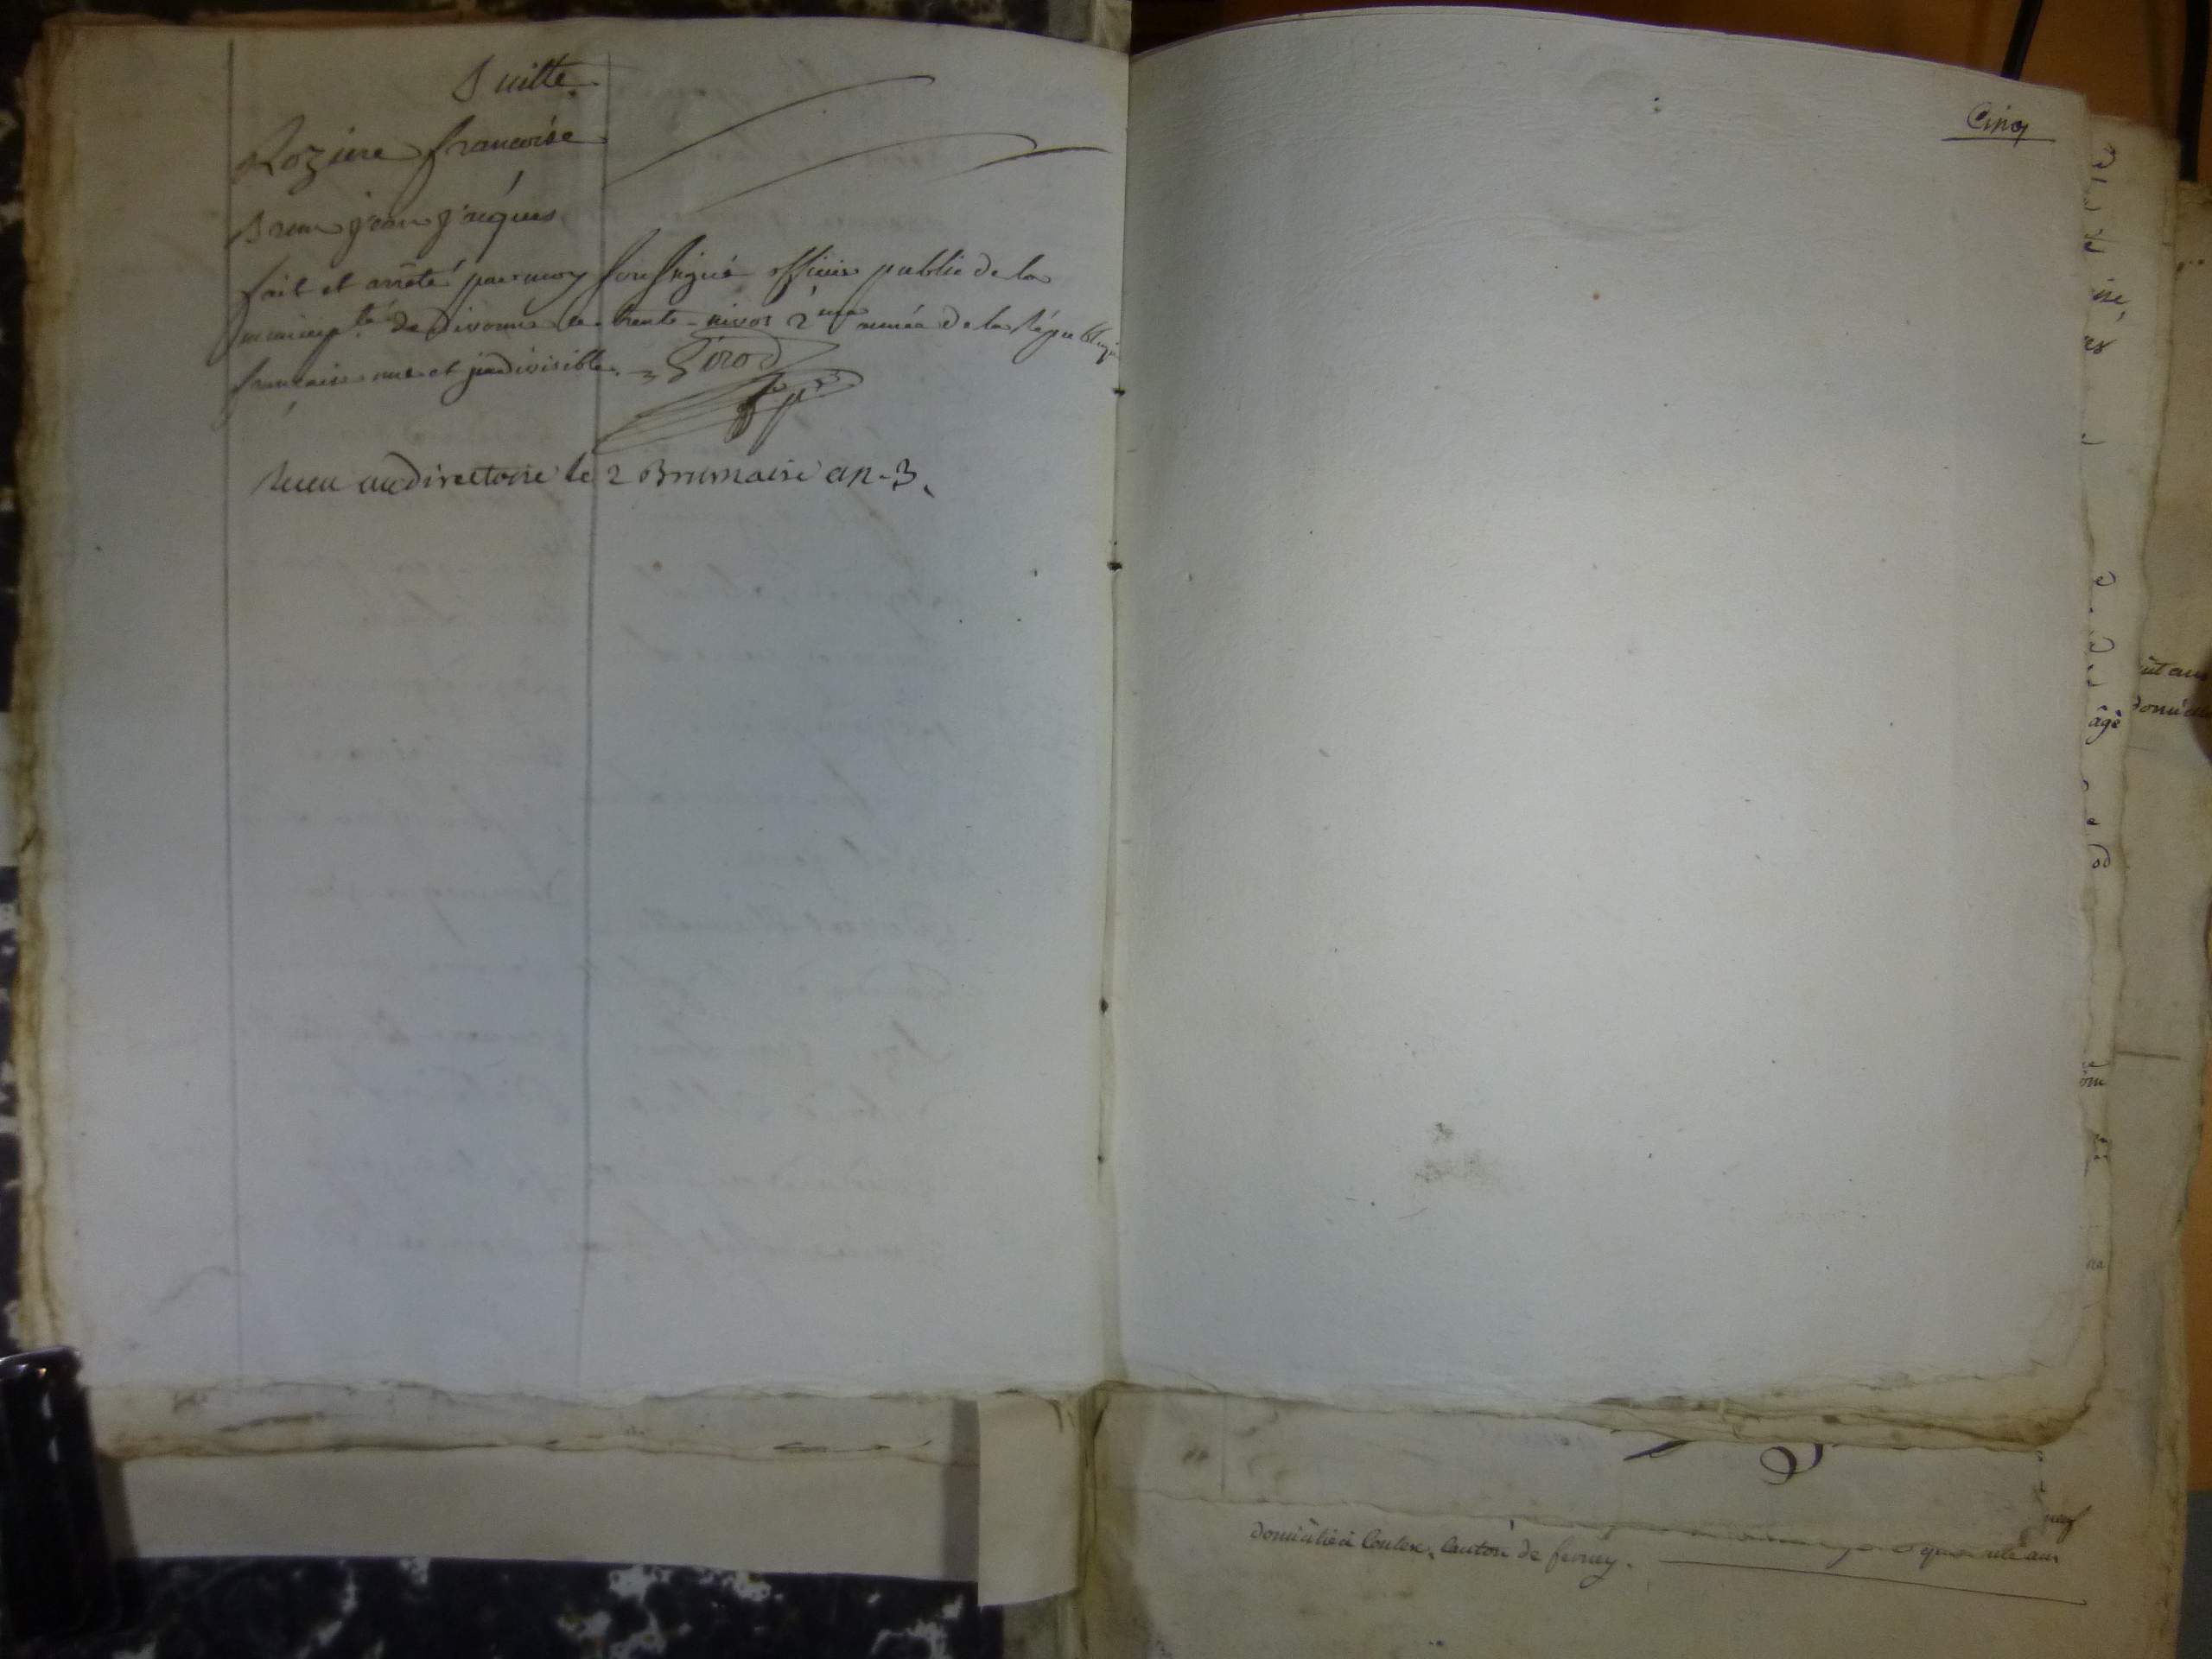 Suitte
Rozine francoise
Brun jean j'aques
fait et arrêté par moy soussigné officier public de la
municip.té de divonne le trente nivos 2me année de la Républiq
francaise une et jndivisible. Girod
Receu au directoire le 2 Brumaire an 3.
Cinq
âgé
domicilié à Contex, Canton de ferney.